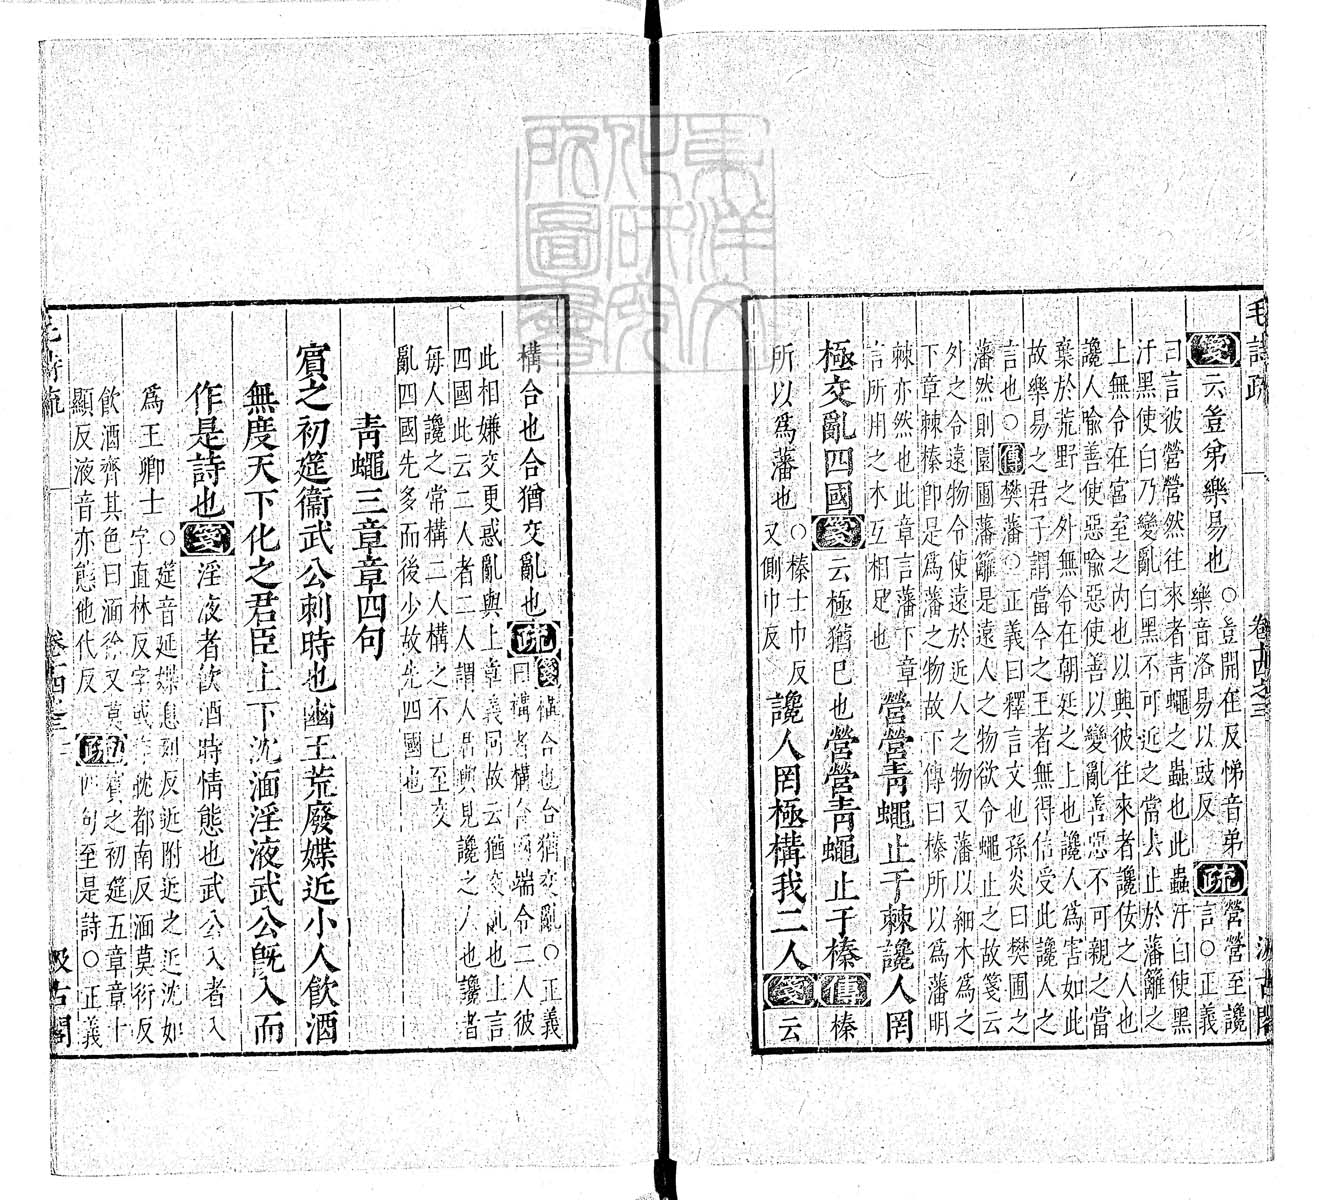 毛詩疏
卷十四之三
汲古閣
箋云豈弟樂易也○豈開在反悌音弟
樂音洛易以豉反疏營營至讒
言○正義
曰言彼營營然往來者青蠅之蟲也此蟲汙白使黑
汙黑使白乃變亂白黑不可近之當去止於藩籬之
上無令在宮室之内也以興彼往來者讒佞之人也
讒人喻善使惡喻惡使善以變亂善惡不可親之當
棄於荒野之外無令在朝廷之上也讒人為害如此
故樂易之君子謂當今之王者無得信受此讒人之
言也○傳樊藩○正義曰釋言文也孫炎曰樊圃之
藩然則園圃藩籬是遠人之物欲令蠅止之故箋云
外之令遠物令使遠於近人之物又藩以細木為之
下章棘榛即是為藩之物故下傳曰榛所以為藩明
棘亦然也此章言藩下章
言所用之木互相足也
營營青蠅止于棘讒人罔
極交亂四國箋云極猶已也營營青蠅止于榛傳榛
所以爲藩也○榛士巾反
又側巾反
讒人罔極構我二人箋云
構合也合猶交亂也疏箋構合也合猶交亂○正義
曰構者構合兩端令二人彼
此相嫌交更惑亂與上章義同故云猶交亂也上言
四國此云二人者二人謂人君與見讒之人也讒者
每人讒之常構二人構之不已至交
亂四國先多而後少故先四國也
青蠅三章章四句
賓之初筵衞武公刺時也幽王荒廢媟近小人飲酒
無度天下化之君臣上下沈湎淫液武公旣入而
作是詩也箋淫液者飲酒時情態也武公入者入
爲王卿士○筵音延媟息列反近附近之近沈如
字直林反字或作耽都南反湎莫衍反
飲酒齊其色曰湎徐又莫
顯反液音亦態他代反疏賓之初筵五章章十
四句至是詩○正義
毛詩疏
卷十四之三
汲古閣